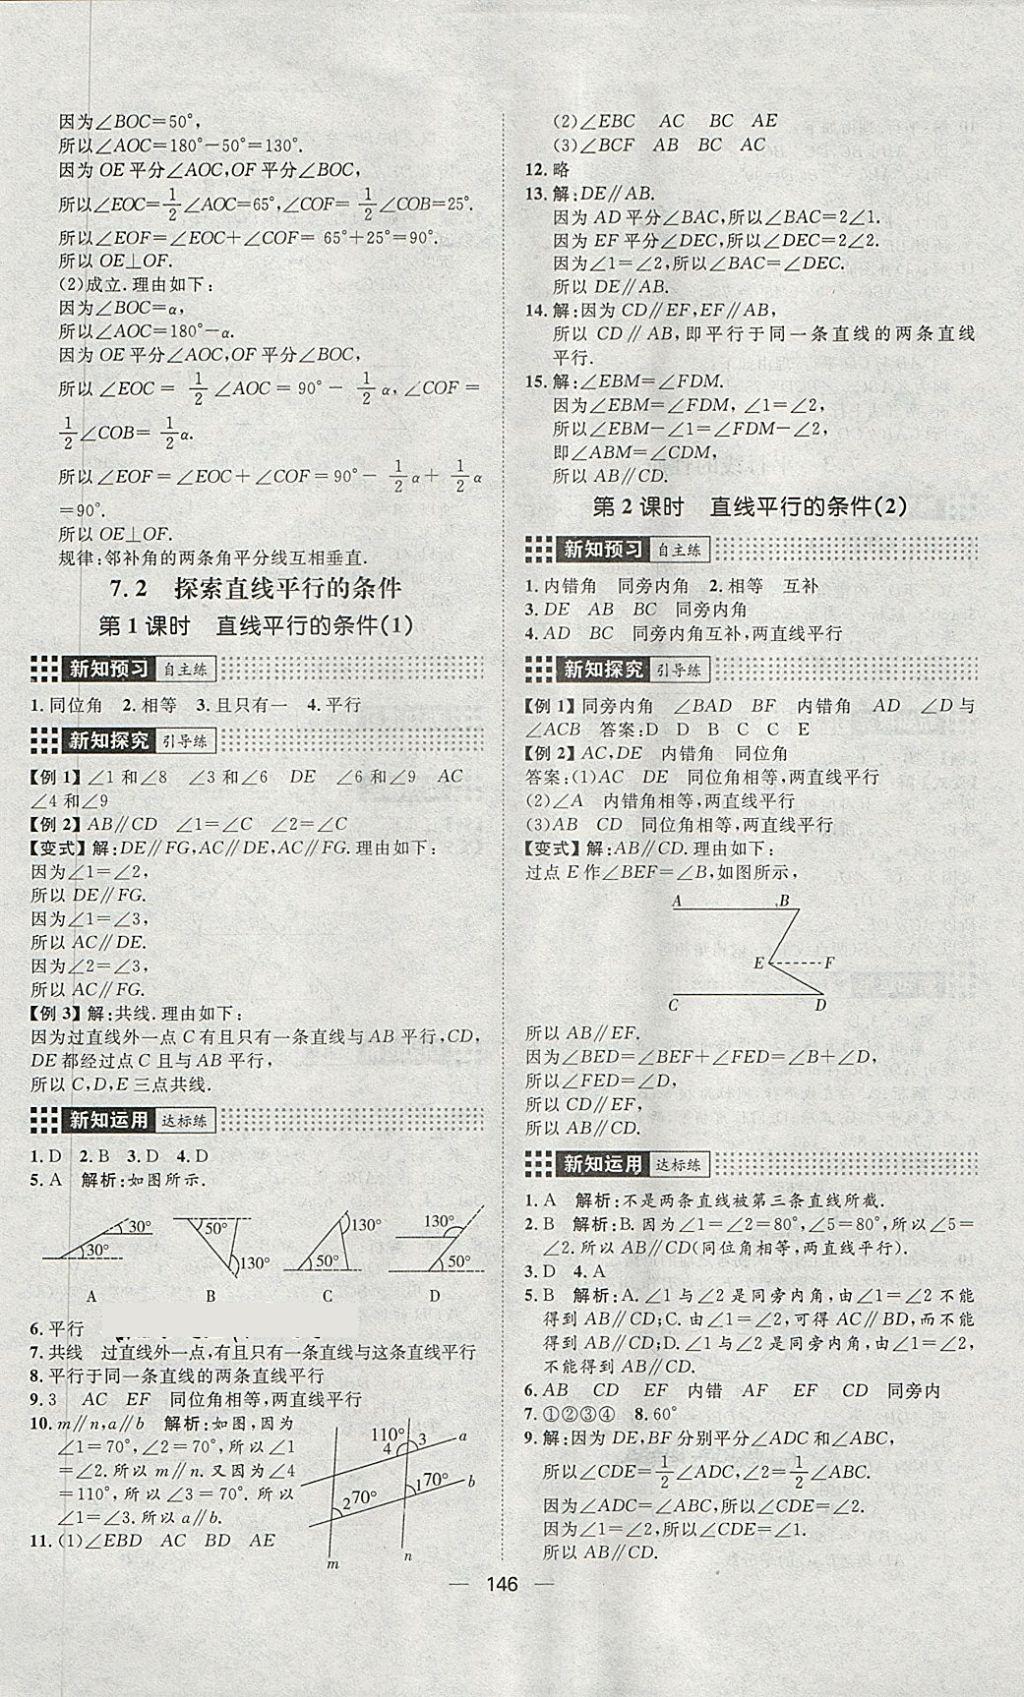 因为∠BOC=50°,
所以∠AOC=180°-50°=130°.
因为OE平分∠AOC,OF平分∠BOC,
所以∠EOC=1/2∠AOC=65°,∠COF=1/2∠COB=25°.
所以∠EOF=∠EOC+∠COF=65°+25°=90°.
所以OE⊥OF.
(2)成立.理由如下:
因为∠BOC=α,
所以∠AOC=180°-α.
因为OE平分∠AOC,OF平分∠BOC,
所以∠EOC=1/2∠AOC=90°-1/2α,∠COF=
1/2∠COB=1/2α.
所以∠EOF=∠EOC+∠COF=90°-1/2α+1/2α
=90°.
所以OE⊥OF.
规律:邻补角的两条角平分线互相垂直.
7.2 探索直线平行的条件
第1课时 直线平行的条件(1)
新知预习 自主练
1.同位角 2.相等 3.且只有一 4.平行
新知探究 引导练
【例1】∠1和∠8 ∠3和∠6 DE ∠6和∠9 AC
∠4和∠9
【例2】AB∥CD ∠1=∠C ∠2=∠C
【变式】解:DE∥FG,AC∥DE,AC∥FG.理由如下:
因为∠1=∠2,
所以DE∥FG.
因为∠1=∠3,
所以AC∥DE.
因为∠2=∠3,
所以AC∥FG.
【例3】解:共线.理由如下:
因为过直线外一点C有且只有一条直线与AB平行,CD,
DE都经过点C且与AB平行,
所以C,D,E三点共线.
新知运用 达标练
1.D 2.B 3.D 4.D
5.A 解析:如图所示.
30° 30° 50° 130° 130° 50° 130° 50°
A B C D
6.平行
7.共线 过直线外一点,有且只有一条直线与这条直线平行
8.平行于同一条直线的两条直线平行
9.3 AC EF 同位角相等,两直线平行
10.m∥n,a∥b 解析:如图,因为
∠1=70°,∠2=70°,所以∠1
=∠2.所以m∥n.又因为∠4
=110°,所以∠3=70°.所以
∠1=∠3.所以a∥b.
110° 4 3 a
170° b
270°
m n
11.(1)∠EBD AC BD AE
(2)∠EBC AC BC AE
(3)∠BCF AB BC AC
12.略
13.解:DE∥AB.
因为AD平分∠BAC,所以∠BAC=2∠1.
因为EF平分∠DEC,所以∠DEC=2∠2.
因为∠1=∠2,所以∠BAC=∠DEC.
所以DE∥AB.
14.解:因为CD∥EF,EF∥AB,
所以CD∥AB,即平行于同一条直线的两条直线
平行.
15.解:∠EBM=∠FDM.
因为∠EBM=∠FDM,∠1=∠2,
所以∠EBM-∠1=∠FDM-∠2,
即∠ABM=∠CDM,
所以AB∥CD.
第2课时 直线平行的条件(2)
新知预习 自主练
1.内错角 同旁内角 2.相等 互补
3.DE AB BC 同旁内角
4.AD BC 同旁内角互补,两直线平行
新知探究 引导练
【例1】同旁内角 ∠BAD BF 内错角 AD ∠D与
∠ACB 答案:D D B C C E
【例2】AC,DE 内错角 同位角
答案:(1)AC DE 同位角相等,两直线平行
(2)∠A 内错角相等,两直线平行
(3)AB CD 同位角相等,两直线平行
【变式】解:AB∥CD.理由如下:
过点E作∠BEF=∠B,如图所示,
A B
E F
C D
所以AB∥EF.
因为∠BED=∠BEF+∠FED=∠B+∠D,
所以∠FED=∠D,
所以CD∥EF,
所以AB∥CD.
新知运用 达标练
1.A 解析:不是两条直线被第三条直线所截.
2.B 解析:B.因为∠1=∠2=80°,∠5=80°,所以∠5=
∠2.所以AB∥CD(同位角相等,两直线平行).
3.D 4.A
5.B 解析:A.∠1与∠2是同旁内角,由∠1=∠2不能
得到AB∥CD;C.由∠1=∠2,可得AC∥BD,而不能
得到AB∥CD;D.∠1与∠2是同旁内角,由∠1=∠2,
不能得到AB∥CD.
6.AB CD EF 内错 AF EF CD 同旁内
7.①②③④ 8.60°
9.解:因为DE,BF分别平分∠ADC和∠ABC,
所以∠CDE=1/2∠ADC,∠2=1/2∠ABC.
因为∠ADC=∠ABC,所以∠CDE=∠2.
因为∠1=∠2,所以∠CDE=∠1.
所以AB∥CD.
— 146 —